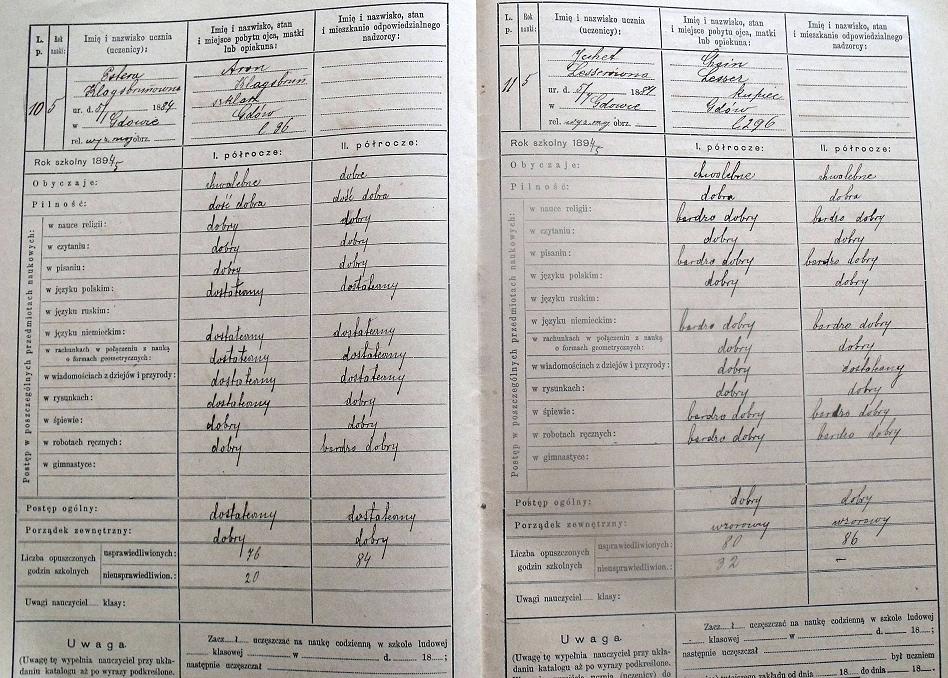 L. p.
Rok nauki:
Imię i nazwisko ucznia (uczenicy):
Imię i nazwisko, stan i miejsce pobytu ojca, matki lub opiekuna:
Imię i nazwisko, stan i mieszkanie odpowiedzialnego nadzorcy:
10 5
Estera
Klagsbrunówna
ur. d. 5/1 1884
w Gdowie
rel. wyz. moj obrz.
Aron
Klagsbrun
szklarz
Gdów
l 96
Rok szkolny 1894/5 I. półrocze: II. półrocze:
Obyczaje: chwalebne dobre
Pilność: dość dobra dość dobra
Postęp w poszczególnych przedmiotach naukowych:
w nauce religii: dobry dobry
w czytaniu: dobry dobry
w pisaniu: dobry dobry
w języku polskim: dostateczny dostateczny
w języku ruskim:
w języku niemieckim: dostateczny dostateczny
w rachunkach w połączeniu z nauką o formach geometrycznych: dostateczny dostateczny
w wiadomościach z dziejów i przyrody: dostateczny dostateczny
w rysunkach: dostateczny dobry
w śpiewie: dobry dobry
w robotach ręcznych: dobry bardzo dobry
w gimnastyce:
Postęp ogólny: dostateczny dostateczny
Porządek zewnętrzny: dobry dobry
Liczba opuszczonych godzin szkolnych
usprawiedliwionych: 76 84
nieusprawiedliwion.: 20
Uwagi nauczyciel..... klasy:
Uwaga
(Uwagę tę wypełnia nauczyciel przy układaniu katalogu aż po wyrazy podkreślone.
Zacz.... ł.... uczęszczać na naukę codzienną w szkole ludowej
klasowej w d. 18....;
następnie uczęszczał
L. p.
Rok nauki:
Imię i nazwisko ucznia (uczenicy):
Imię i nazwisko, stan i miejsce pobytu ojca, matki lub opiekuna:
Imię i nazwisko, stan i mieszkanie odpowiedzialnego nadzorcy:
11 5
Lesserówna
ur. d. 5/7 1884
w Gdowie
rel. wyz. moj obrz.
Chain
Lesser
kupiec
Gdów
l 296
Rok szkolny 1894/5 I. półrocze: II. półrocze:
Obyczaje: chwalebne chwalebne
Pilność: dobra dobra
Postęp w poszczególnych przedmiotach naukowych:
w nauce religii: bardzo dobry bardzo dobry
w czytaniu: dobry dobry
w pisaniu: bardzo dobry bardzo dobry
w języku polskim: dobry dobry
w języku ruskim:
w języku niemieckim: bardzo dobry bardzo dobry
w rachunkach w połączeniu z nauką o formach geometrycznych: dobry dobry
w wiadomościach z dziejów i przyrody: dobry dostateczny
w rysunkach: dobry dobry
w śpiewie: bardzo dobry bardzo dobry
w robotach ręcznych: bardzo dobry bardzo dobry
w gimnastyce:
Postęp ogólny: dobry dobry
Porządek zewnętrzny: wzorowy wzorowy
Liczba opuszczonych godzin szkolnych
usprawiedliwionych: 80 86
nieusprawiedliwion.: 32 —
Uwagi nauczyciel..... klasy:
Uwaga
(Uwagę tę wypełnia nauczyciel przy układaniu katalogu aż po wyrazy podkreślone.
Zacz.... ł.... uczęszczać na naukę codzienną w szkole ludowej
klasowej w d. 18....;
następnie uczęszczał
był uczniem
zakładu od dnia 18.... do dnia 18....